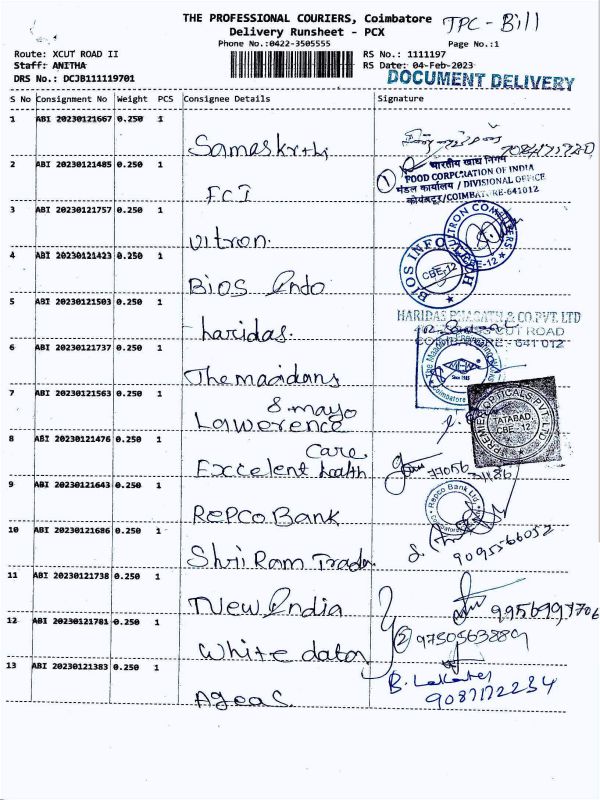 THE PROFESSIONAL COURIERS, Coimbatore
TPC - Bill
Delivery Runsheet - PCX
Phone No.:0422-3505555
Page No.:1
Route: XCUT ROAD II
RS No.: 1111197
Staff: ANITHA
RS Date: 04-Feb-2023
DRS No.: DCJB111119701
DOCUMENT DELIVERY
S No Consignment No Weight PCS Consignee Details Signature
1 ABI 20230121667 0.250 1
2 ABI 20230121485 0.250 1
भारतीय खाद्य निगम
FOOD CORPORATION OF INDIA
मंडल कार्यालय / DIVISIONAL OFFICE
कोयंबटूर/COIMBATORE-641012
FCI
3 ABI 20230121757 0.250 1
VITRON COMPUTERS
CBE-12
Vitron.
4 ABI 20230121423 0.250 1
BIOS INFOTECH
CBE-12
Bios Info
5 ABI 20230121503 0.250 1
HARIDAS BHAGATH & CO.PVT. LTD
CUT ROAD
COIMBATORE - 641 012
haridas.
6 ABI 20230121737 0.250 1
Since 1985
Coimbatore
7 ABI 20230121563 0.250 1
PREMIER OPTICALS PVT. LTD
TATABAD
CBE - 12
& mayo
Lawerence
8 ABI 20230121476 0.250 1
Care
Excelent health
9 ABI 20230121643 0.250 1
Repco Bank Ltd
Repco Bank
10 ABI 20230121686 0.250 1
9095566052
Shri Ram Trader
11 ABI 20230121738 0.250 1
New India
12 ABI 20230121781 0.250 1
2 9750563889
White dator
13 ABI 20230121383 0.250 1
9087172234
Ageas.